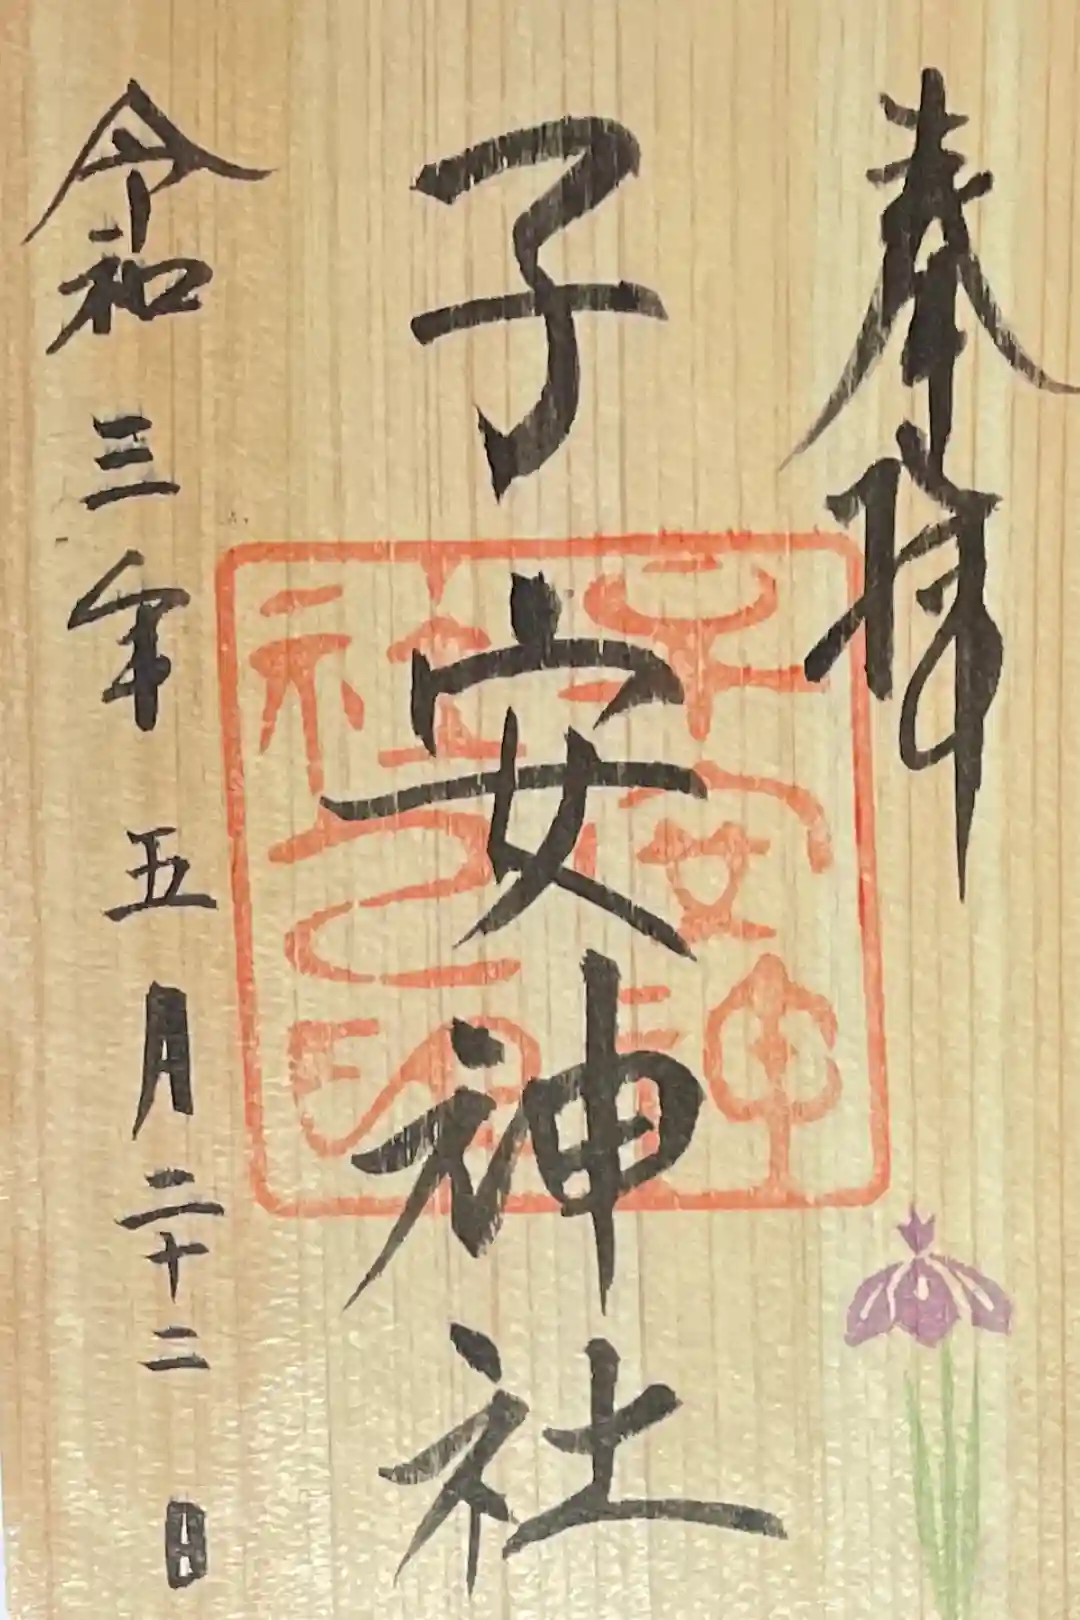 奉拝
子安神社
子安神社之印
令和三年五月二十二日